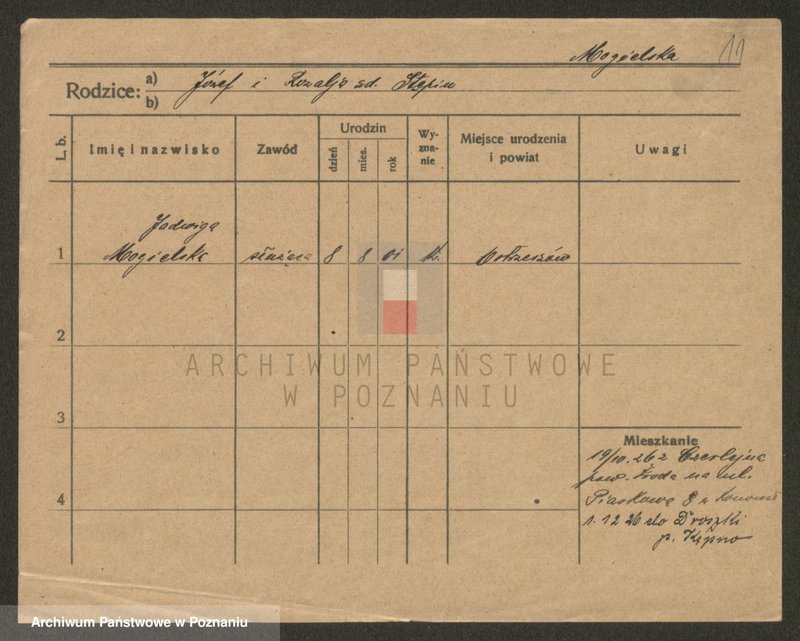 Mogielska 19
Rodzice: a) Józef i Rozalja zd. Stępin
b)
L. b. Imię i nazwisko Zawód Urodzin dzień mies. rok Wy-zna-nie Miejsce urodzenia i powiat Uwagi
Jadwiga
1 Mogielska służąca 8 8 01 k. Ostrzeszów
2
ARCHIWUM PAŃSTWOWE
W POZNANIU
3
Mieszkanie
19/10. 26 z Czerlejna
pow. Środa na ul.
4 Piaskową 8 u
1. 12 26 do Droszki
p. Kępno
Archiwum Państwowe w Poznaniu